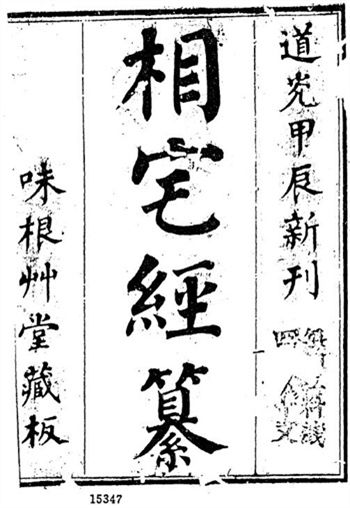 道光甲辰新刊
相宅經纂
味根艸堂藏板
15347